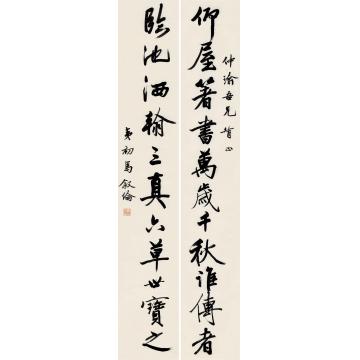 仰屋著書萬歲千秋誰傳者
仲瑜吾兄督正
臨池洒翰三真六草世寶之
夷初馬敘倫